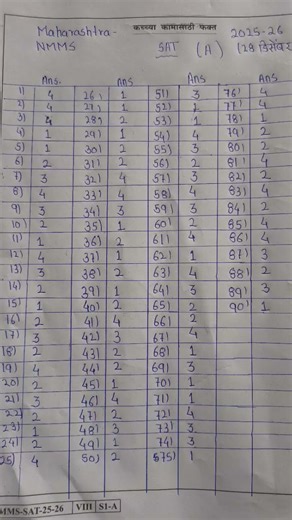 कच्च्या कामासाठी फक्त
Maharashtra- 2025-26
NMMS SAT (A) (28 डिसेंबर
Ans. Ans Ans Ans.
1) 4 26) 1 51) 3 76) 4
2) 4 27) 1 52) 1 77) 4
3) 4 28) 2 53) 1 78) 1
4) 1 29) 1 54) 4 79) 2
5) 1 30) 2 55) 3 80) 2
6) 2 31) 2 56) 2 81) 4
7) 3 32) 4 57) 3 82) 2
8) 4 33) 4 58) 4 83) 4
9) 3 34) 3 59) 3 84) 2
10) 2 35) 1 60) 2 85) 4
11) 1 36) 2 61) 4 86) 4
12) 4 37) 1 62) 1 87) 3
13) 3 38) 2 63) 4 88) 2
14) 2 39) 1 64) 3 89) 3
15) 1 40) 2 65) 2 90) 1
16) 2 41) 4 66) 2
17) 3 42) 3 67) 4
18) 2 43) 2 68) 1
19) 4 44) 2 69) 3
20) 2 45) 1 70) 1
21) 3 46) 4 71) 1
22) 2 47) 2 72) 4
23) 1 48) 3 73) 3
24) 2 49) 1 74) 3
25) 4 50) 2 75) 1
MMS-SAT-25-26 VIII S1-A